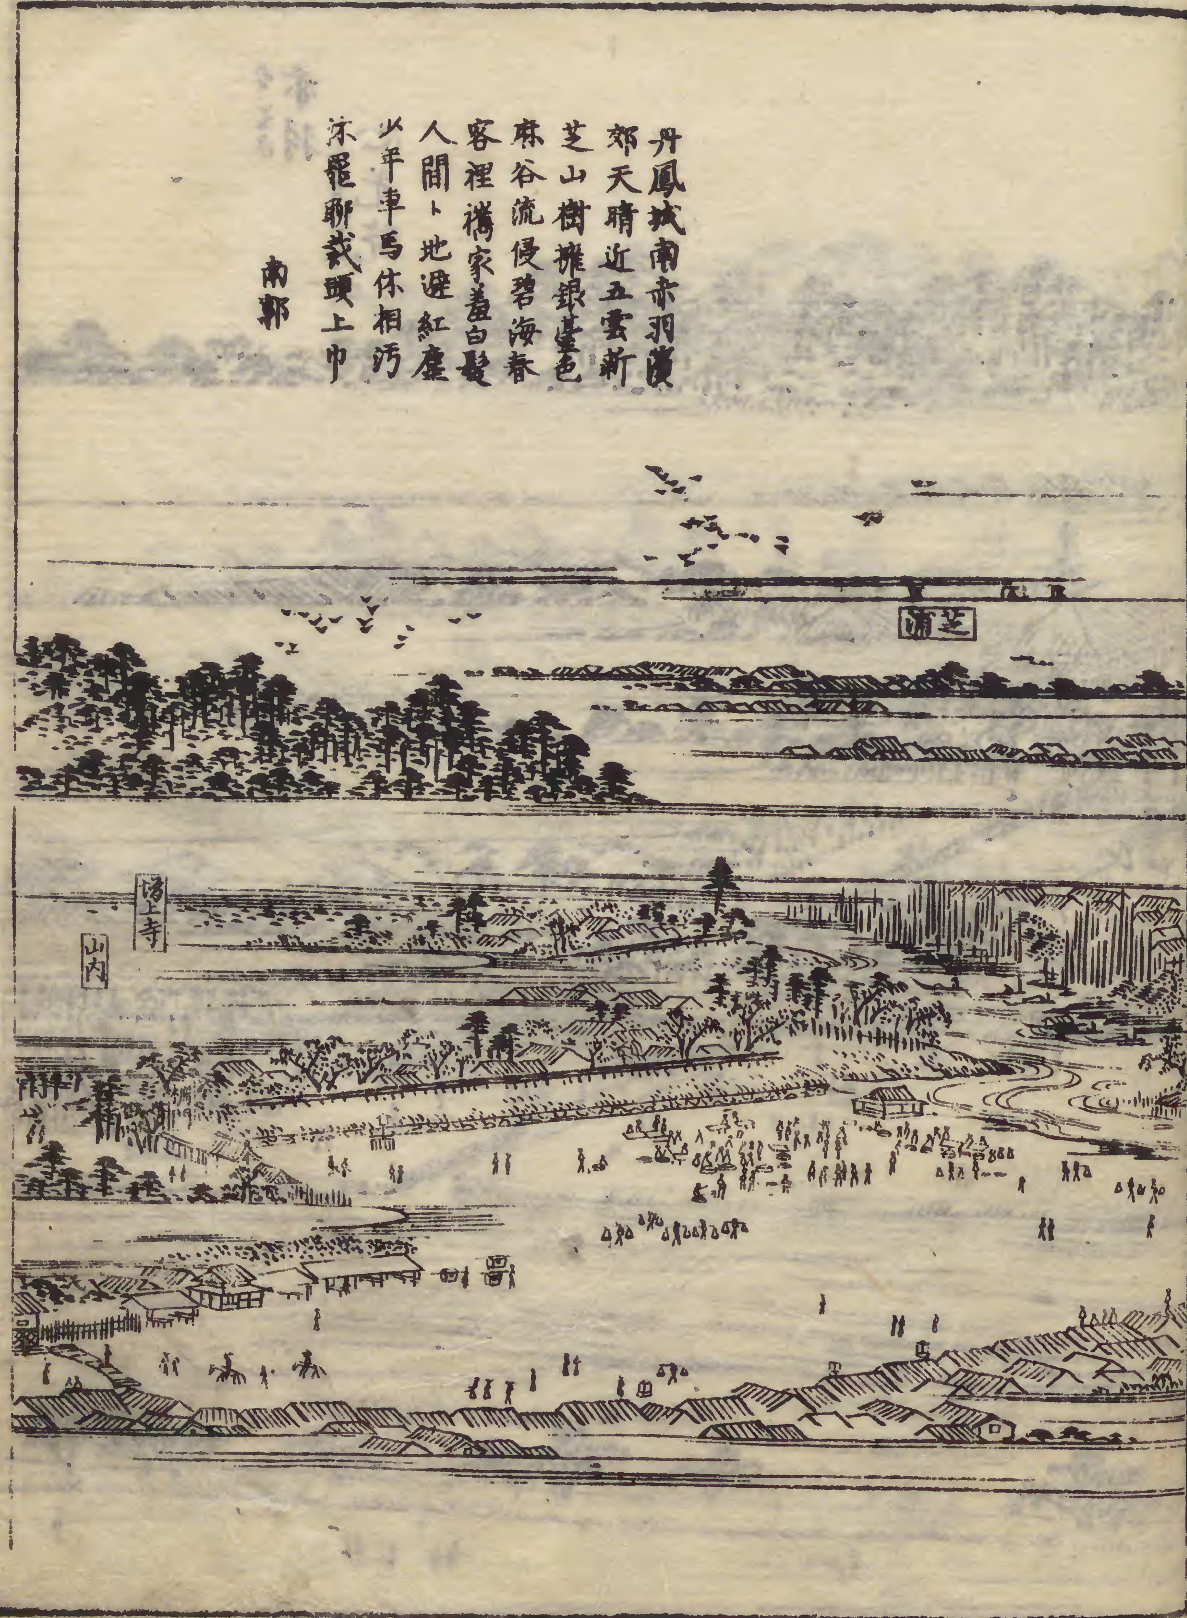 丹鳳城南赤羽濱
郊天晴近五雲新
芝山樹擁銀臺色
麻谷流侵碧海春
客裡攜家羞白髮
人間卜地避紅塵
少年車馬休相汚
沐罷聊裁頭上巾
南郭
芝浦
増上寺
山内